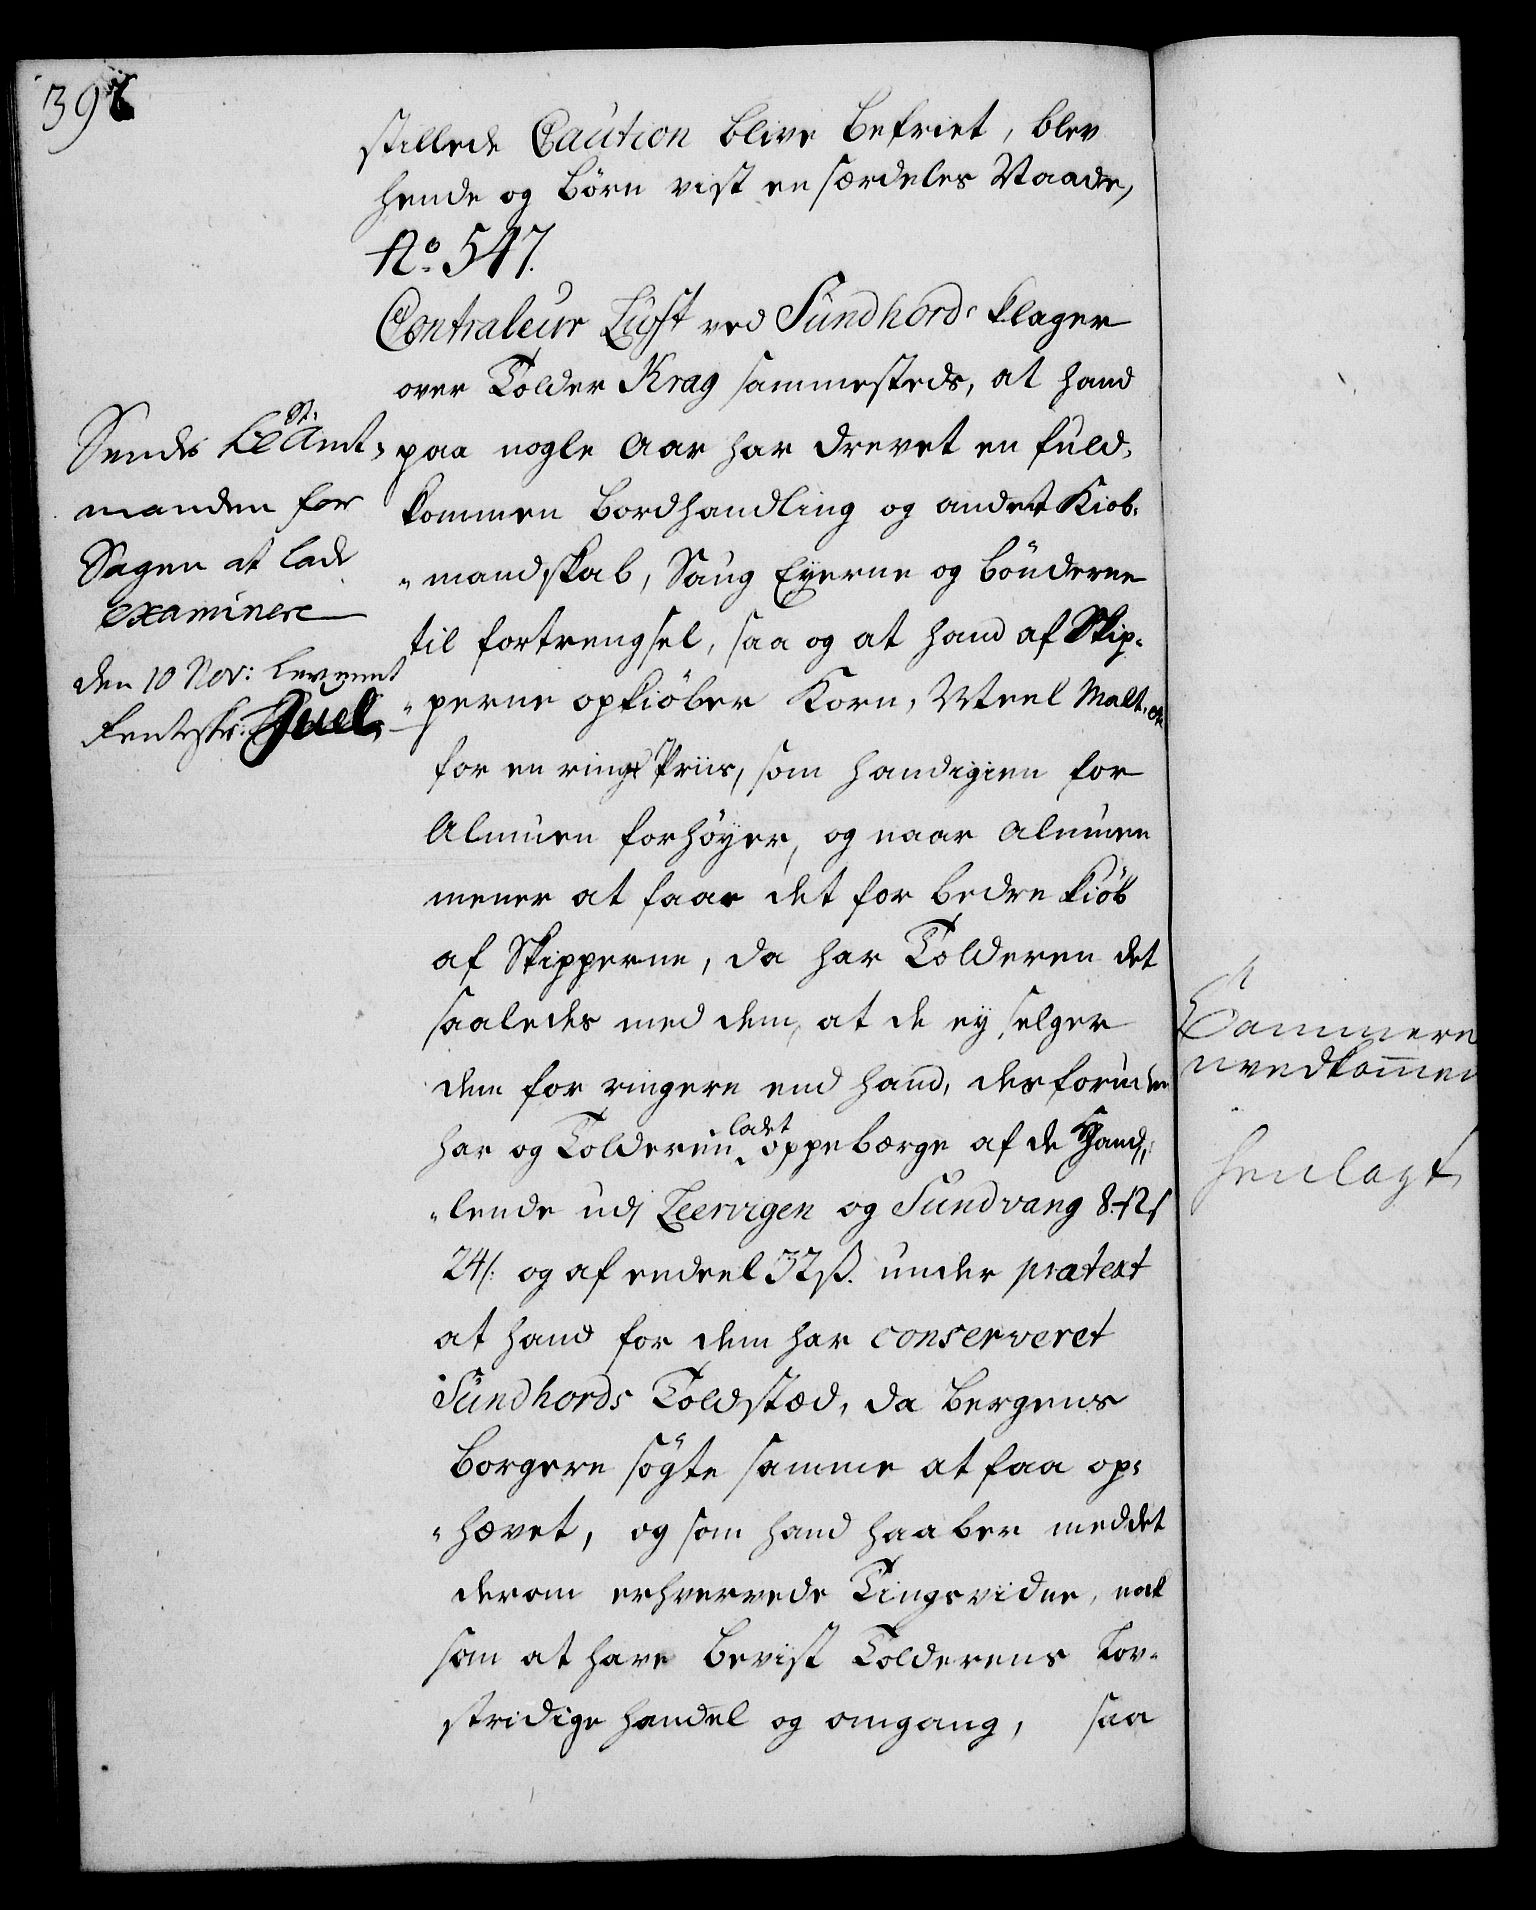 398
stillede Caution blive befriet, blev
hende og børn vist en særdeles Naade,
No. 547.
Contraleur Lust ved Sundhord: klager
over Tolder Krag sammesteds, at hand
paa nogle Aar har drevet en fuld,
kommen bordhandling og andet Kiøb,
mandskab, Saug Eyerne og bønderne
til fortrengsel, saa og at hand af Skip,
perne opkiøber Korn, Meel Malt, etc
for en ringe Priis, som hand igien for
Almuen forhøyer, og naar Almuen
mener at faae det for bedre kiøb
af Skipperne, da har Tolderen det
saaledes med dem, at de ey selger
dem for ringere end hand, desforuden
har og Tolderen ladet oppebærge af de Hand,
lende udj Leervigen og Sundvang
24 s: og af endeel 32 ß. under prætext
at hand for dem har conserveret
Sundhords Toldstæd, da Bergens
borgere søgte samme at faa op,
hævet, og som hand haaber med det
derom erhvervede Tingsvidne,
som at have bevist Tolderens Lov,
stridige handel og omgang, saa
Sendes St: Amt,
manden for
Sagen at lade
examinere
den 10 Nov: leveret
Juel
Cammeret
uvedkommen
henlagt